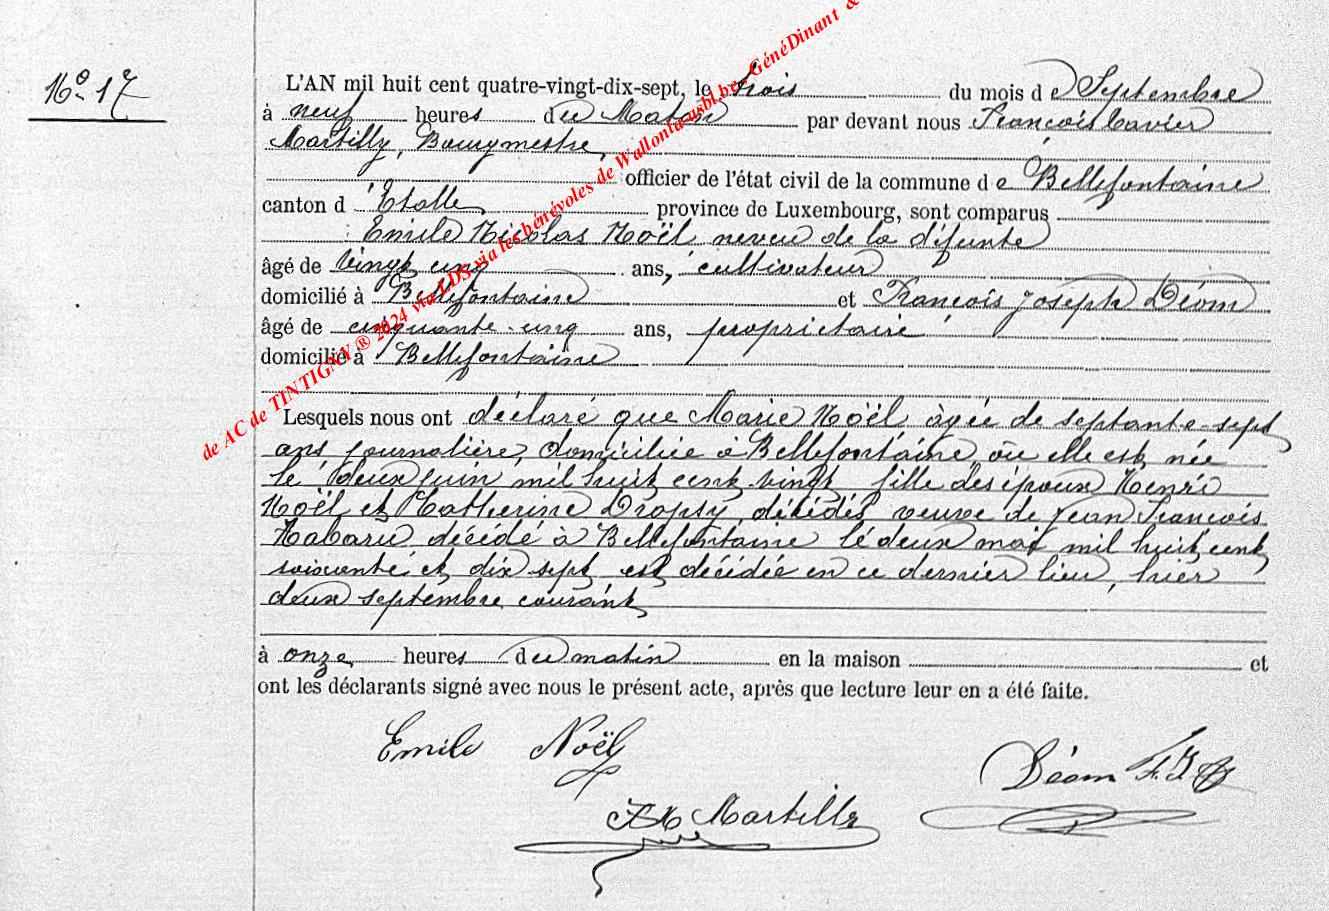 de AC de TINTIGNY ® 2024 via LDS via les bénévoles de Wallonia asbl.be - GénéDinant &
Nº 17
L'AN mil huit cent quatre-vingt-dix-sept, le trois du mois de Septembre
à neuf heures du Matin par devant nous François Xavier
Martilly, Bourgmestre,
officier de l'état civil de la commune de Bellefontaine
canton d'Etalle, province de Luxembourg, sont comparus
Emile Nicolas Noël neveu de la défunte
âgé de vingt cinq ans, cultivateur
domicilié à Bellefontaine et François Joseph Déom
âgé de cinquante-cinq ans, propriétaire
domicilié à Bellefontaine
Lesquels nous ont déclaré que Marie Noël âgée de septante-sept
ans journalière, domiciliée à Bellefontaine où elle est née
le deux juin mil huit cent vingt fille des époux Henri
Noël et Catherine Dropsy, décédés, veuve de Jean François
Habaru décédé à Bellefontaine le deux mai mil huit cent
soixante et dix sept est décédée en ce dernier lieu, hier
deux septembre courant
à onze heures du matin en la maison et
ont les déclarants signé avec nous le présent acte, après que lecture leur en a été faite.
Emile Noël
Déom F. J.
Martilly